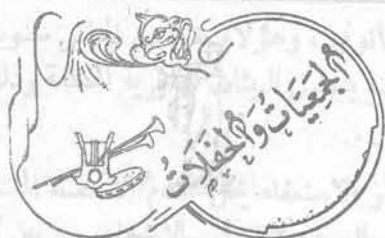 الْجَمْعِيَّاتُ وَالْحَفَلَاتُ